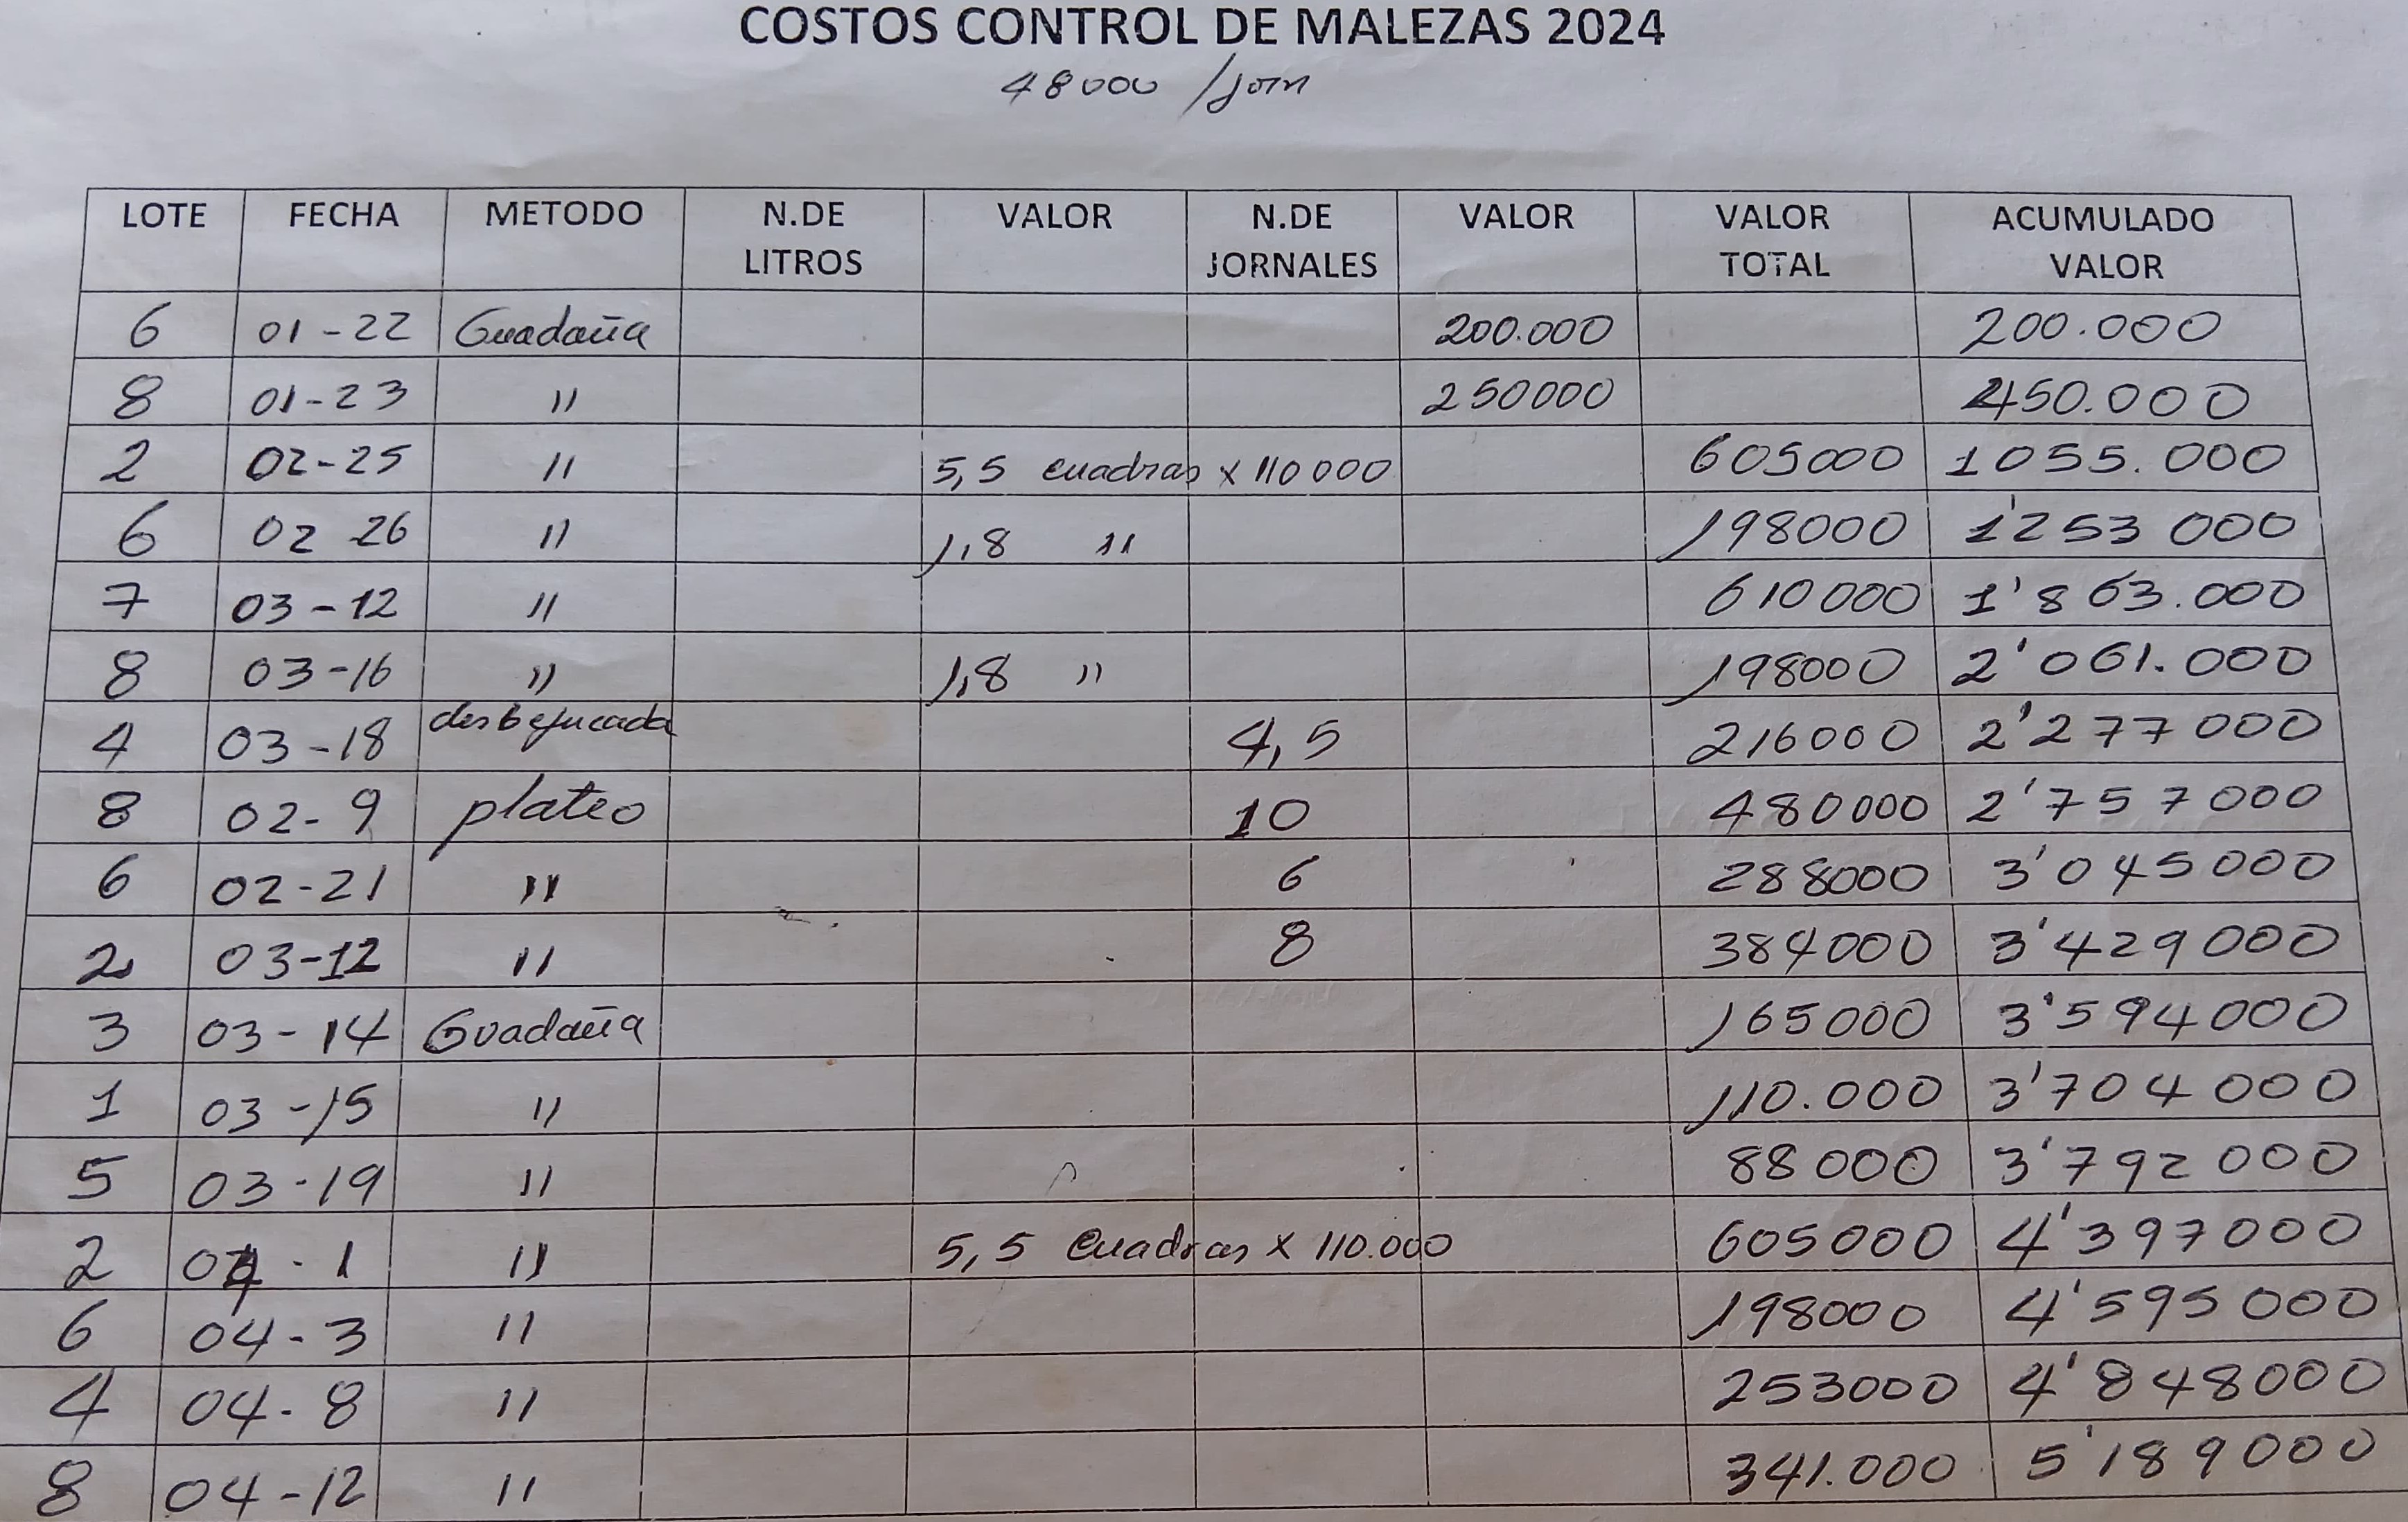 COSTOS CONTROL DE MALEZAS 2024
48000 /jorn
LOTE FECHA METODO N.DE LITROS VALOR N.DE JORNALES VALOR VALOR TOTAL ACUMULADO VALOR
6 01-22 Guadaña 200.000 200.000
8 01-23 " 250000 450.000
2 02-25 " 5,5 cuadras x 110000 605000 1055.000
6 02 26 " 1,8 " 198000 1'253 000
7 03-12 " 610000 1'863.000
8 03-16 " 1,8 " 198000 2'061.000
4 03-18 desbejucada 4,5 216000 2'277000
8 02-9 plateo 10 480000 2'757000
6 02-21 " 6 288000 3'045000
2 03-12 " 8 384000 3'429000
3 03-14 Guadaña 165000 3'594000
1 03-15 " 110.000 3'704000
5 03-19 " 88000 3'792000
2 04-1 " 5,5 Cuadras x 110.000 605000 4'397000
6 04-3 " 198000 4'595000
4 04-8 " 253000 4'848000
8 04-12 " 341.000 5'189000